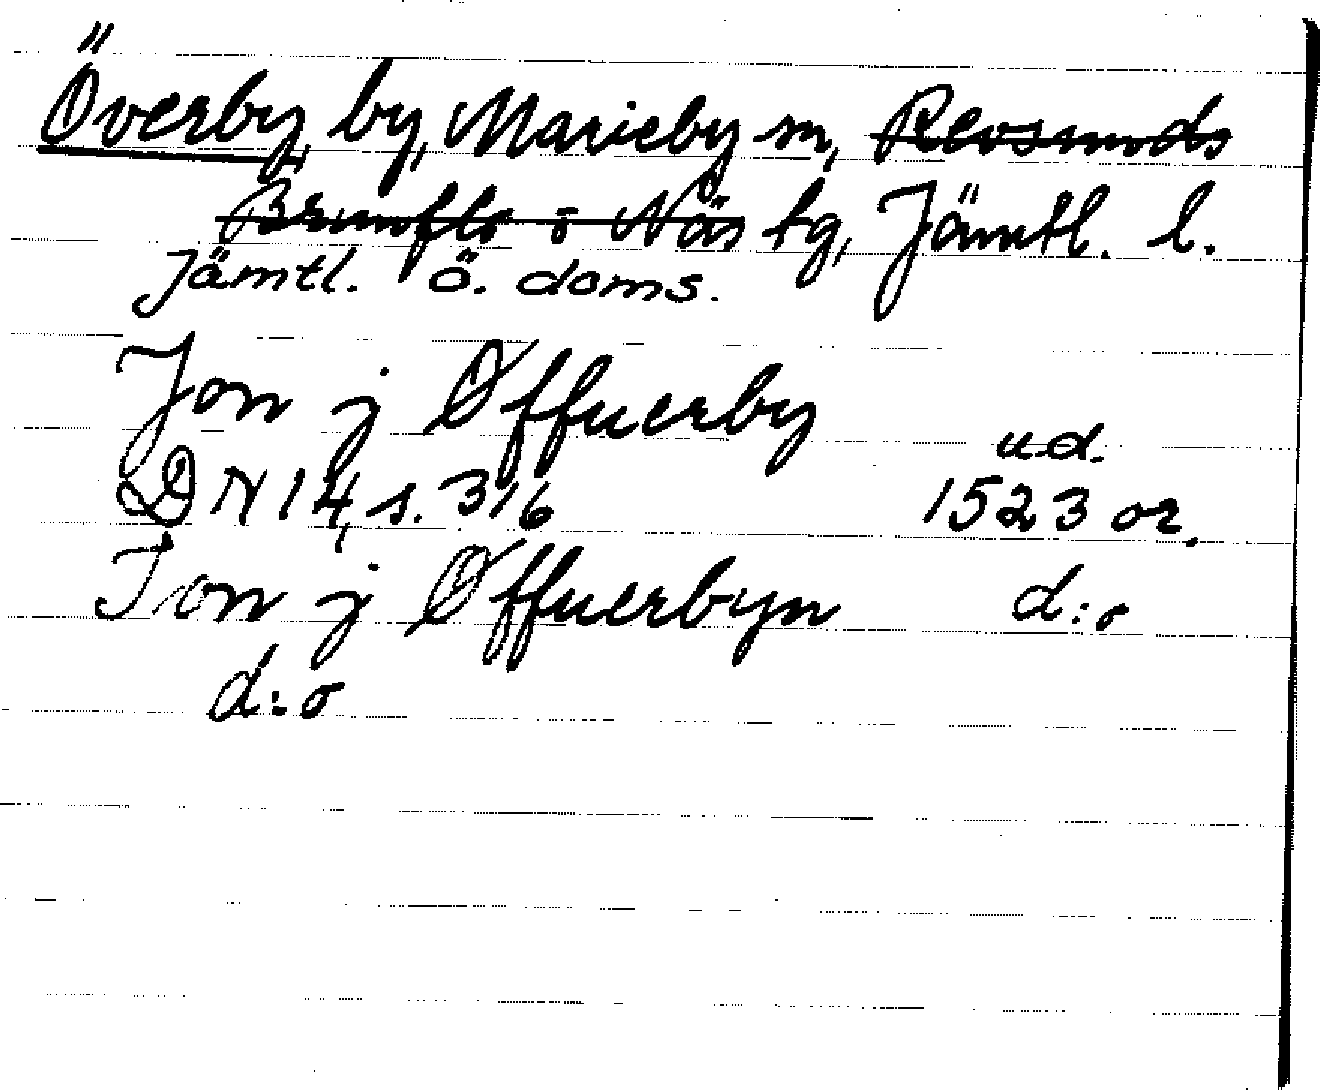 Överby, by, Marieby sn, Revsunds
Brunflo o Näs tg, Jämtl. l.
Jämtl. ö. doms.
Jon j Øffuerby
ud.
DN 14, s. 316 1523 or.
Jon j Øffuerbyn d:o
d:o